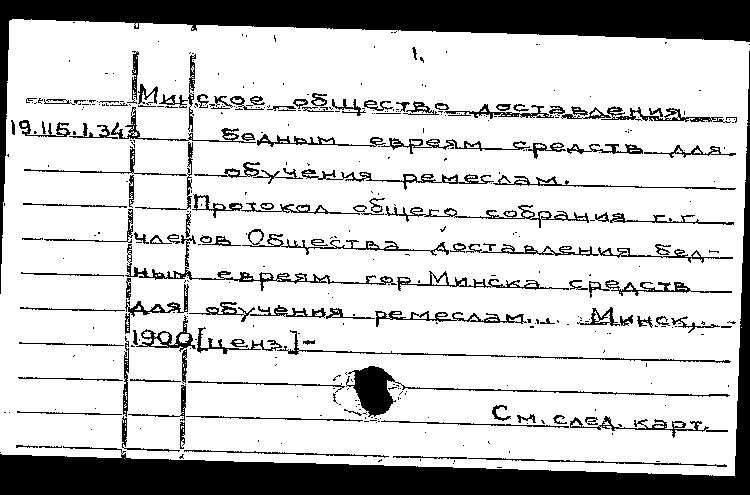 1.
Минское общество доставления
19.115.1.343 бедным евреям средств для
обучения ремеслам.
Протокол общего собрания г.г.
членов Общества доставления бед-
ным евреям гор. Минска средств
для обучения ремеслам... Минск,
1900.[ценз.]-
См. след. карт.